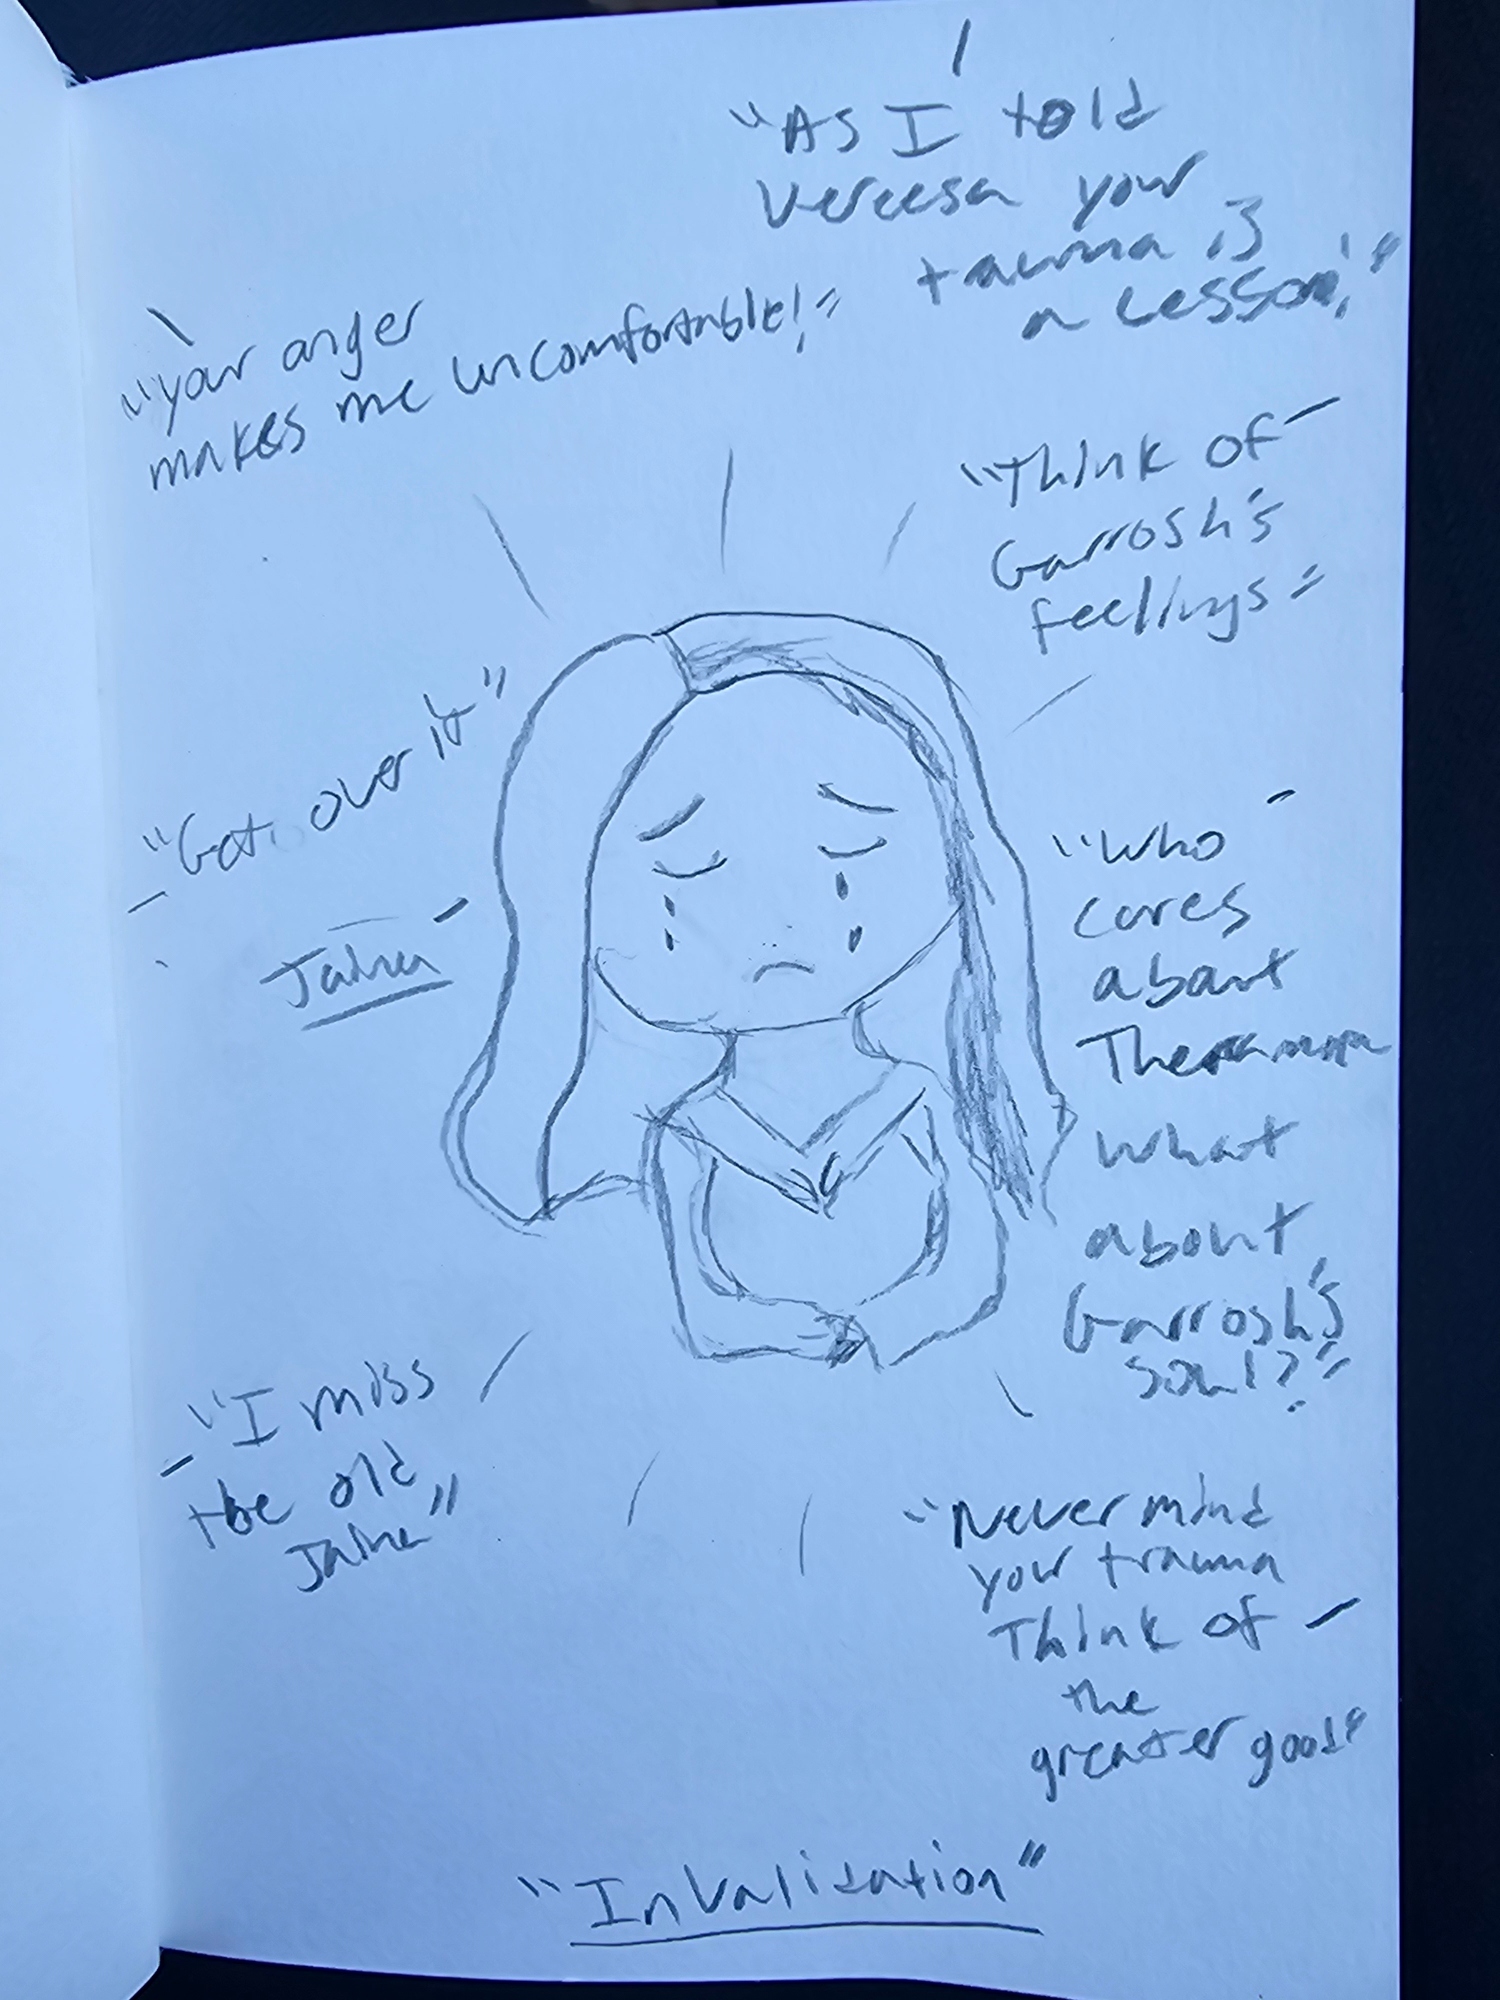 "As I told
Vereesa your
trauma is
a lesson!"
"your anger
makes me uncomfortable!"
"Think of
Garrosh's
feelings"
"Get over it"
Jaina
"Who
cares
about
Theramore
what
about
Garrosh's
soul?"
"I miss
the old
Jaina"
"Never mind
your trauma
Think of
the
greater good"
"Invalidation"